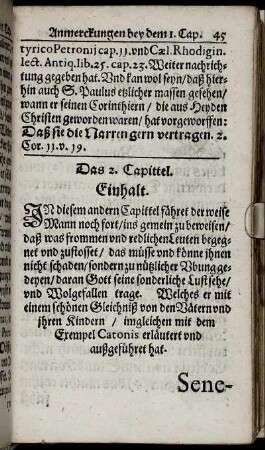 Anmerckungen bey dem 1. Cap. 45
tyrico Petronij cap. 11. vnd Cæl. Rhodigin.
lect. Antiq. lib. 25. cap. 23. Weiter nachrich-
tung gegeben hat. Vnd kan wol seyn / daß hier-
hin auch S. Paulus etzlicher massen gesehen /
wann er seinen Corinthiern / die aus Heyden
Christen geworden waren / hat vorgeworffen:
Daß sie die Narren gern vertragen. 2.
Cor. 11. v. 19.
Das 2. Capittel.
Einhalt.
IN diesem andern Capittel fähret der weise
Mann noch fort / ins gemein zu beweisen /
daß was frommen vnd redlichen Leuten begeg-
net vnd zustosset / das müsse vnd könne jhnen
nicht schaden / sondern zu nützlicher Vbung ge-
deyen / daran Gott seine sonderliche Lust sehe /
vnd Wolgefallen trage. Welches er mit
einem schönen Gleichniß von den Vätern vnd
jhren Kindern / imgleichen mit dem
Exempel Catonis erläutert vnd
außgeführet hat.
Sene-